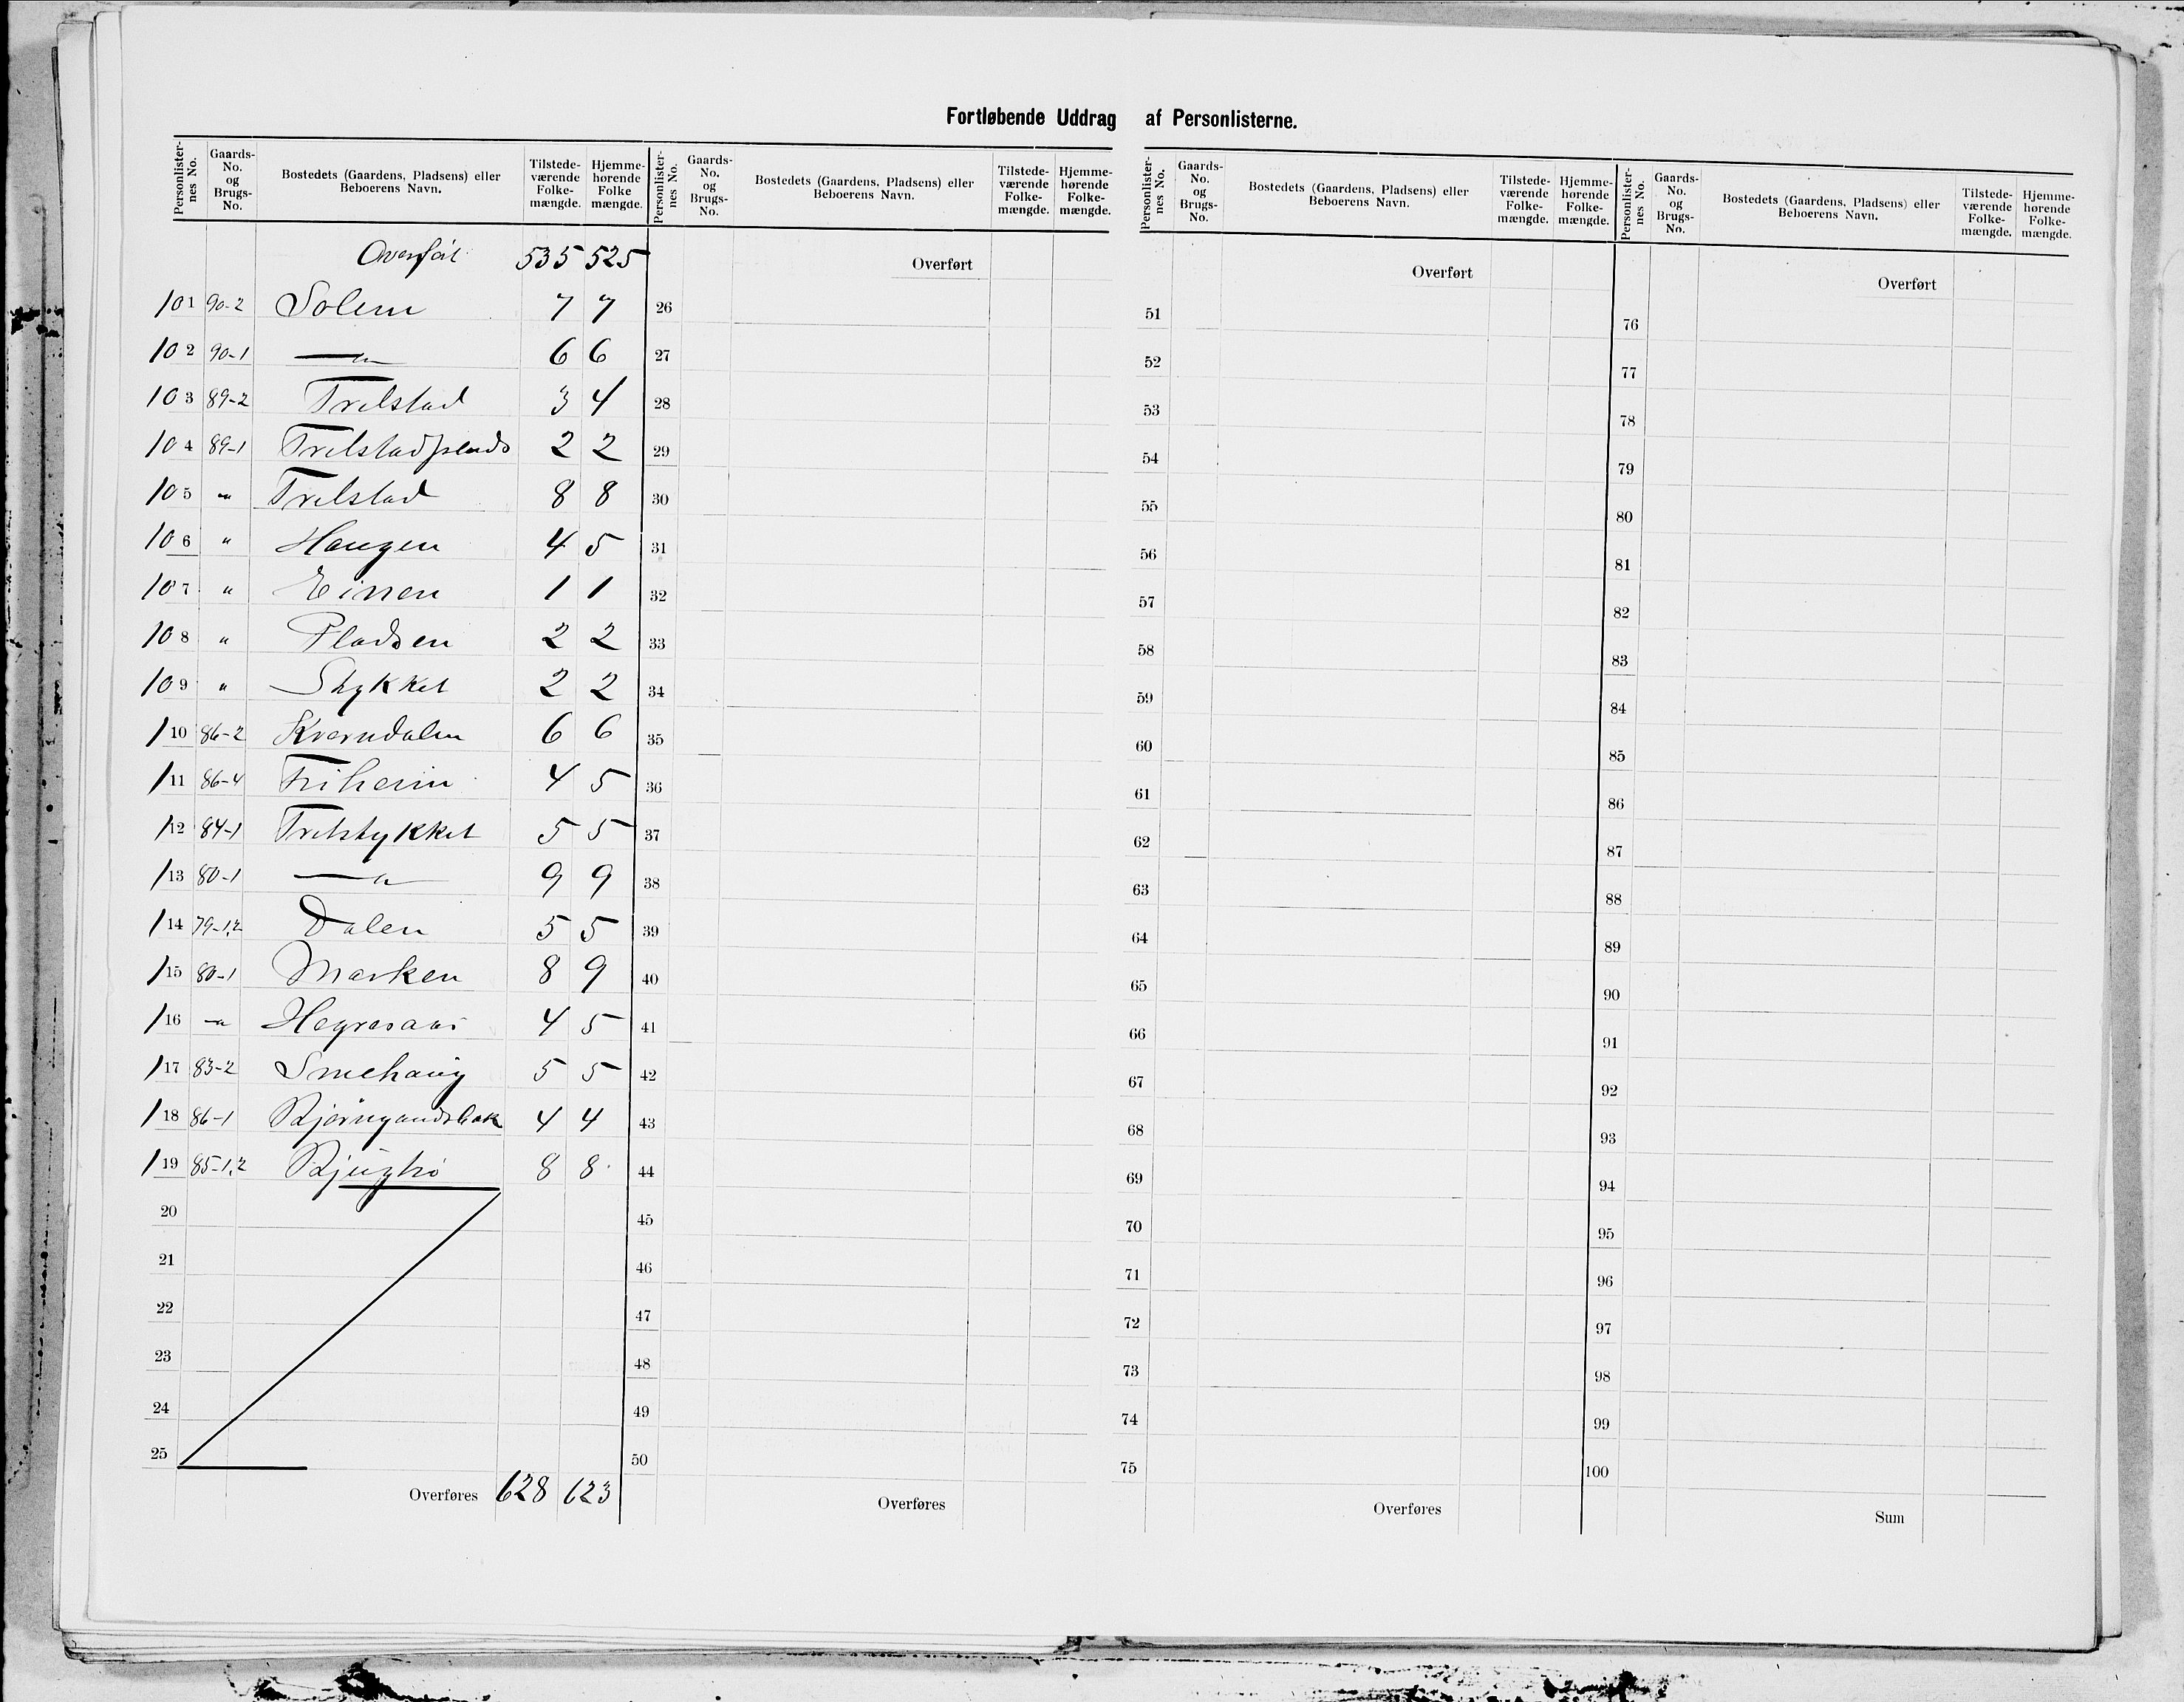 Fortløbende Uddrag af Personlisterne.
Personlisternes No. Gaards-No. og Brugs-No. Bostedets (Gaardens, Pladsens) eller Beboerens Navn. Tilstedeværende Folkemængde. Hjemmehørende Folke mængde.
Overført 535 525
101 90-2 Solem 7 7
102 90-1 —"— 6 6
103 89-2 Trelstad 3 4
104 89-1 Trelstad 2 2
105 " Trelstad 8 8
106 " Haugen 4 5
107 " 1 1
108 " Pladsen 2 2
109 " Stykket 2 2
110 86-2 Kverndalen 6 6
111 86-4 Friheim 4 5
112 84-1 Tretstykket 5 5
113 80-1 —"— 9 9
114 79-1,2 Dalen 5 5
115 80-1 Marken 8 9
116 " Hegresaas 4 5
117 83-2 Smehaug 5 5
118 86-1 4 4
119 85-1,2 8 8
20
21
22
23
24
25
Overføres 628 623
Personlisternes No. Gaards-No. og Brugs-No. Bostedets (Gaardens, Pladsens) eller Beboerens Navn. Tilstedeværende Folkemængde. Hjemmehørende Folkemængde.
Overført
26
27
28
29
30
31
32
33
34
35
36
37
38
39
40
41
42
43
44
45
46
47
48
49
50
Overføres
Personlisternes No. Gaards-No. og Brugs-No. Bostedets (Gaardens, Pladsens) eller Beboerens Navn. Tilstedeværende Folkemængde. Hjemmehørende Folkemængde.
Overført
51
52
53
54
55
56
57
58
59
60
61
62
63
64
65
66
67
68
69
70
71
72
73
74
75
Overføres
Personlisternes No. Gaards-No. og Brugs-No. Bostedets (Gaardens, Pladsens) eller Beboerens Navn. Tilstedeværende Folkemængde. Hjemmehørende Folkemængde.
Overført
76
77
78
79
80
81
82
83
84
85
86
87
88
89
90
91
92
93
94
95
96
97
98
99
100
Sum